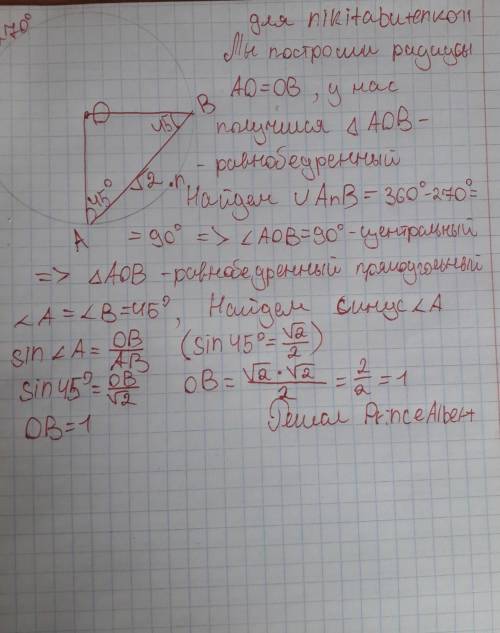 270°
для nikitabutenkon
Мы построили радиусы
AO=OB, у нас
получился △AOB-
- равнобедренный
O
B
45°
45°
√2
n
A
Найдем ∪AnB = 360°-270°=
= 90° => ∠AOB=90° - центральный
=> △AOB - равнобедренный прямоугольный
∠A = ∠B = 45°, Найдем синус ∠A
sin∠A = OB/AB (sin 45° = √2/2)
sin 45° = OB/√2 OB = √2·√2/2 = 2/2 = 1
OB = 1
Решал PrinceAlbert